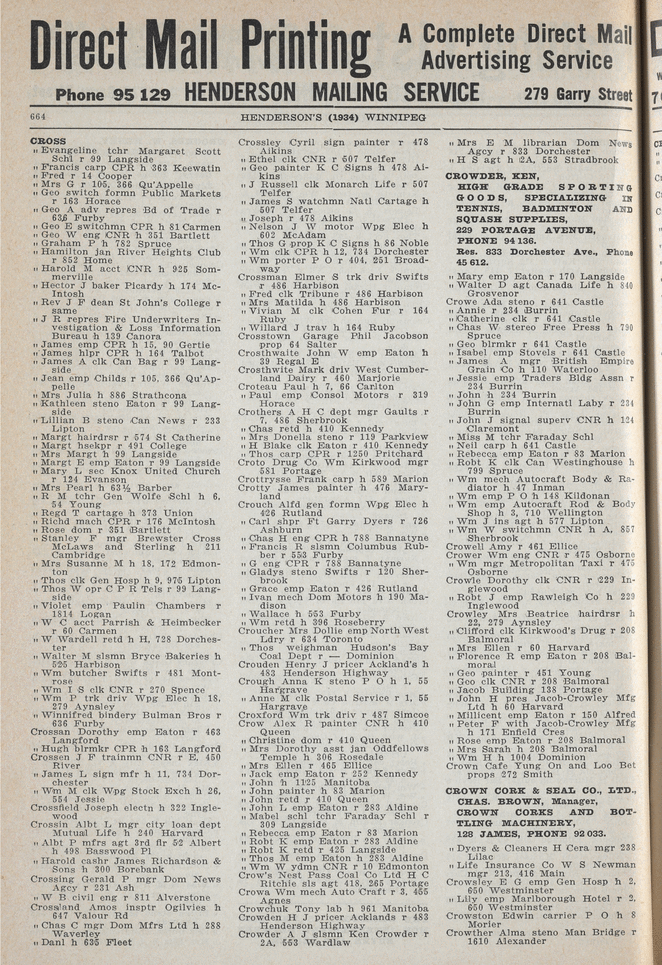 Direct Mail Printing
A Complete Direct Mail
Advertising Service
Phone 95 129 HENDERSON MAILING SERVICE 279 Garry Street
664
HENDERSON'S (1934) WINNIPEG
CROSS
„ Evangeline tchr Margaret Scott
Schl r 99 Langside
„ Francis carp CPR h 363 Keewatin
„ Fred r 14 Cooper
„ Mrs G r 105, 366 Qu'Appelle
„ Geo switch formn Public Markets
r 163 Horace
„ Geo A adv repres Bd of Trade r
636 Furby
„ Geo E switchmn CPR h 81 Carmen
„ Geo W eng CNR h 351 Bartlett
„ Graham P h 782 Spruce
„ Hamilton jan River Heights Club
r 852 Home
„ Harold M acct CNR h 925 Som-
merville
„ Hector J baker Picardy h 174 Mc-
Intosh
„ Rev J F dean St John's College r
same
„ J R repres Fire Underwriters In-
vestigation & Loss Information
Bureau h 139 Canora
„ James emp CPR h 15, 90 Gertie
„ James hlpr CPR h 164 Talbot
„ James A clk Can Bag r 99 Lang-
side
„ Jean emp Childs r 105, 366 Qu'Ap-
pelle
„ Mrs Julia h 886 Strathcona
„ Kathleen steno Eaton r 99 Lang-
side
„ Lillian B steno Can News r 233
Lipton
„ Margt hairdrsr r 574 St Catherine
„ Margt hsekpr r 491 College
„ Mrs Margt h 99 Langside
„ Margt E emp Eaton r 99 Langside
„ Mary L sec Knox United Church
r 124 Evanson
„ Mrs Pearl h 63½ Barber
„ R M tchr Gen Wolfe Schl h 6,
54 Young
„ Regd T cartage h 373 Union
„ Richd mach CPR r 176 McIntosh
„ Rose dom r 351 Bartlett
„ Stanley F mgr Brewster Cross
McLaws and Sterling h 211
Cambridge
„ Mrs Susanne M h 18, 172 Edmon-
ton
„ Thos clk Gen Hosp h 9, 975 Lipton
„ Thos W opr C P R Tels r 99 Lang-
side
„ Violet emp Paulin Chambers r
1814 Logan
„ W C acct Parrish & Heimbecker
r 60 Carmen
„ W Wardell retd h H, 728 Dorches-
ter
„ Walter M slsmn Bryce Bakeries h
525 Harbison
„ Wm butcher Swifts r 481 Mont-
rose
„ Wm I S clk CNR r 270 Spence
„ Wm P trk driv Wpg Elec h 18,
279 Aynsley
„ Winnifred bindery Bulman Bros r
636 Furby
Crossan Dorothy emp Eaton r 463
Langford
„ Hugh blrmkr CPR h 163 Langford
Crossen J F trainmn CNR r E, 450
River
„ James L sign mfr h 11, 734 Dor-
chester
„ Wm M clk Wpg Stock Exch h 26,
554 Jessie
Crossfield Joseph electn h 322 Ingle-
wood
Crossin Albt L mgr city loan dept
Mutual Life h 240 Harvard
„ Albt P mfrs agt 3rd flr 52 Albert
h 498 Basswood Pl
„ Harold cashr James Richardson &
Sons h 300 Borebank
Crossing Gerald P mgr Dom News
Agcy r 231 Ash
„ W B civil eng r 811 Alverstone
Crossland Amos insptr Ogilvies h
647 Valour Rd
„ Chas C mgr Dom Mfrs Ltd h 288
Waverley
„ Danl h 635 Fleet
Crossley Cyril sign painter r 478
Aikins
„ Ethel clk CNR r 507 Telfer
„ Geo painter K C Signs h 478 Ai-
kins
„ J Russell clk Monarch Life r 507
Telfer
„ James S watchmn Natl Cartage h
507 Telfer
„ Joseph r 478 Aikins
„ Nelson J W motor Wpg Elec h
602 McAdam
„ Thos G prop K C Signs h 86 Noble
„ Wm clk CPR h 12, 734 Dorchester
„ Wm porter P O r 404, 251 Broad-
way
Crossman Elmer S trk driv Swifts
r 486 Harbison
„ Fred clk Tribune r 486 Harbison
„ Mrs Matilda h 486 Harbison
„ Vivian M clk Cohen Fur r 164
Ruby
„ Willard J trav h 164 Ruby
Crosstown Garage Phil Jacobson
prop 64 Salter
Crosthwaite John W emp Eaton h
39 Regal E
Crosthwite Mark driv West Cumber-
land Dairy r 460 Marjorie
Croteau Paul h 7, 66 Carlton
„ Paul emp Consol Motors r 319
Horace
Crothers A H C dept mgr Gaults r
7, 486 Sherbrook
„ Chas retd h 410 Kennedy
„ Mrs Donella steno r 119 Parkview
„ H Blake clk Eaton r 410 Kennedy
„ Thos carp CPR r 1250 Pritchard
Croto Drug Co Wm Kirkwood mgr
581 Portage
Crottrysse Frank carp h 589 Marion
Crotty James painter h 476 Mary-
land
Crouch Alfd gen formn Wpg Elec h
426 Rutland
„ Carl shpr Ft Garry Dyers r 726
Ashburn
„ Chas H eng CPR h 788 Bannatyne
„ Francis R slsmn Columbus Rub-
ber r 553 Furby
„ G eng CPR r 788 Bannatyne
„ Gladys steno Swifts r 120 Sher-
brook
„ Grace emp Eaton r 426 Rutland
„ Ivan mech Dom Motors h 190 Ma-
dison
„ Wallace h 553 Furby
„ Wm retd h 396 Roseberry
Croucher Mrs Dollie emp North West
Ldry r 634 Toronto
„ Thos weighman Hudson's Bay
Coal Dept r — Dominion
Crouden Henry J pricer Ackland's h
483 Henderson Highway
Crough Anna K steno P O h 1, 55
Hargrave
„ Anne M clk Postal Service r 1, 55
Hargrave
Croxford Wm trk driv r 487 Simcoe
Crow Alex R painter CNR h 410
Queen
„ Christine dom r 410 Queen
„ Mrs Dorothy asst jan Oddfellows
Temple h 306 Rosedale
„ Mrs Ellen r 465 Ellice
„ Jack emp Eaton r 252 Kennedy
„ John h 1125 Manitoba
„ John painter h 83 Marion
„ John retd r 410 Queen
„ John L emp Eaton r 283 Aldine
„ Mabel schl tchr Faraday Schl r
309 Langside
„ Rebecca emp Eaton r 83 Marion
„ Robt K emp Eaton r 283 Aldine
„ Robt K retd r 425 Langside
„ Thos M emp Eaton h 283 Aldine
„ Wm W ydmn CNR r 10 Edmonton
Crow's Nest Pass Coal Co Ltd H C
Ritchie sls agt 418, 265 Portage
Crowa Wm mech Auto Craft r 3, 455
Agnes
Crowchuk Tony lab h 961 Manitoba
Crowden H J pricer Acklands r 483
Henderson Highway
Crowder A J slsmn Ken Crowder r
2A, 553 Wardlaw
„ Mrs E M librarian Dom News
Agcy r 833 Dorchester
„ H S agt h 2A, 553 Stradbrook
CROWDER, KEN,
HIGH GRADE SPORTING
GOODS, SPECIALIZING IN
TENNIS, BADMINTON AND
SQUASH SUPPLIES,
229 PORTAGE AVENUE,
PHONE 94 136.
Res. 833 Dorchester Ave., Phone
45 612.
„ Mary emp Eaton r 170 Langside
„ Walter D agt Canada Life h 840
Grosvenor
Crowe Ada steno r 641 Castle
„ Annie r 234 Burrin
„ Catherine clk r 641 Castle
„ Chas W stereo Free Press h 790
Spruce
„ Geo blrmkr r 641 Castle
„ Isabel emp Stovels r 641 Castle
„ James A mgr British Empire
Grain Co h 110 Waterloo
„ Jessie emp Traders Bldg Assn r
234 Burrin
„ John h 234 Burrin
„ John G emp Internatl Laby r 234
Burrin
„ John J signal superv CNR h 124
Claremont
„ Miss M tchr Faraday Schl
„ Neil carp h 641 Castle
„ Rebecca emp Eaton r 83 Marion
„ Robt K clk Can Westinghouse h
799 Spruce
„ Wm mech Autocraft Body & Ra-
diator h 47 Inman
„ Wm emp P O h 148 Kildonan
„ Wm emp Autocraft Rod & Body
Shop h 3, 710 Wellington
„ Wm J ins agt h 577 Lipton
„ Wm W switchmn CNR h A, 857
Sherbrook
Crowell Amy r 461 Ellice
Crower Wm eng CNR r 475 Osborne
„ Wm mgr Metropolitan Taxi r 475
Osborne
Crowle Dorothy clk CNR r 229 In-
glewood
„ Robt J emp Rawleigh Co h 229
Inglewood
Crowley Mrs Beatrice hairdrsr h
22, 279 Aynsley
„ Clifford clk Kirkwood's Drug r 208
Balmoral
„ Mrs Ellen r 60 Harvard
„ Florence R emp Eaton r 208 Bal-
moral
„ Geo painter r 451 Young
„ Geo clk CNR r 208 Balmoral
„ Jacob Building 138 Portage
„ John H pres Jacob-Crowley Mfg
Ltd h 60 Harvard
„ Millicent emp Eaton r 150 Alfred
„ Peter P with Jacob-Crowley Mfg
h 171 Enfield Cres
„ Rose emp Eaton r 208 Balmoral
„ Mrs Sarah h 208 Balmoral
„ Wm H h 1004 Dominion
Crown Cafe Yung On and Loo Bet
props 272 Smith
CROWN CORK & SEAL CO., LTD.,
CHAS. BROWN, Manager,
CROWN CORKS AND BOT-
TLING MACHINERY,
128 JAMES, PHONE 92 033.
„ Dyers & Cleaners H Cera mgr 238
Lilac
„ Life Insurance Co W S Newman
mgr 213, 416 Main
Crowsley E G emp Gen Hosp h 2,
650 Westminster
„ Lily emp Marlborough Hotel r 2,
650 Westminster
Crowston Edwin carrier P O h 8
Morier
Crowther Alma steno Man Bridge r
1610 Alexander